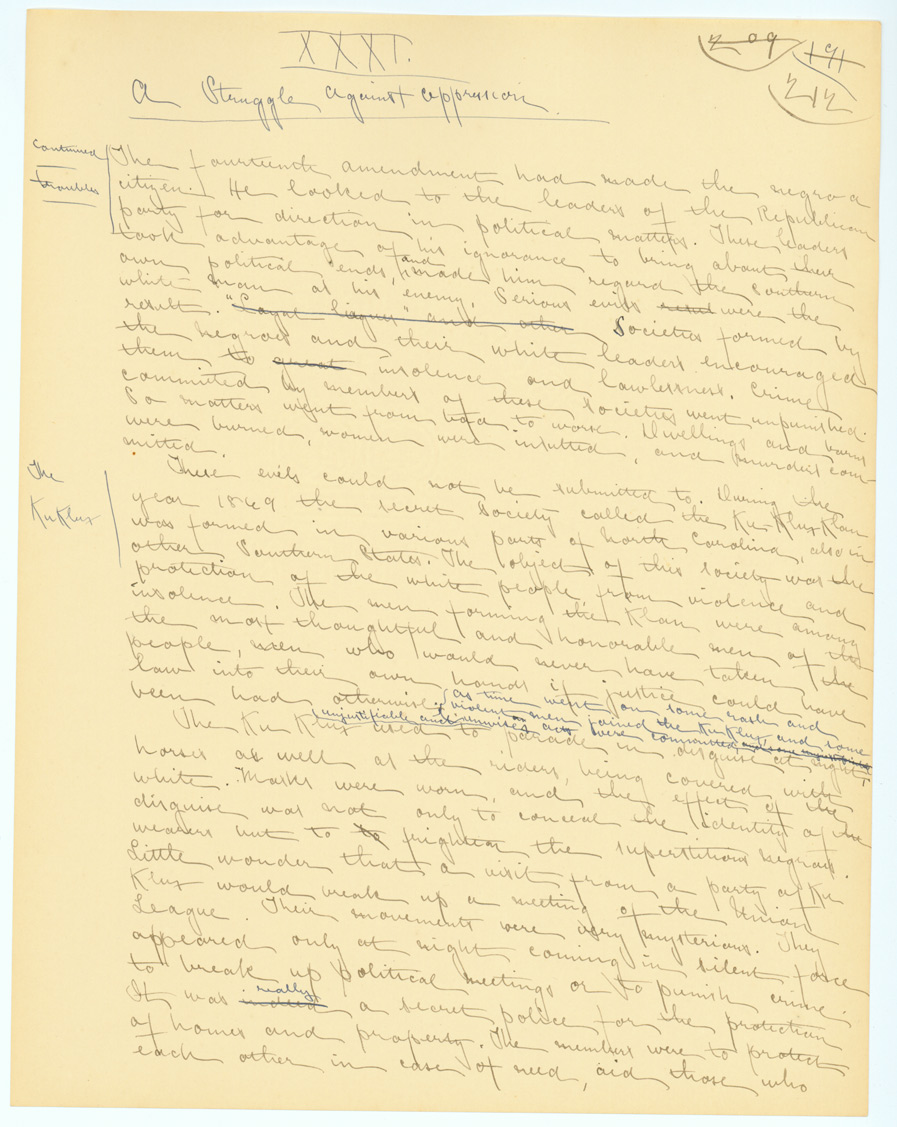 XXXI.
209 191
212
A Struggle against oppression.
continued
troubles
The fourteenth amendment had made the negro a
citizen. He looked to the leaders of the Republican
party for direction in political matters. These leaders
took advantage of his ignorance to bring about their
own political ends, and made him regard the southern
white man as his enemy. Serious evils were the
result. "Loyal leagues" and other Societies formed by
the negroes and their white leaders encouraged
them to great insolence and lawlessness. Crime
committed by members of these societies went unpunished.
So matters went from bad to worse. Dwellings and barns
were burned, women were insulted, and murders com-
mitted.
The
KuKlux
These evils could not be submitted to. During the
year 1869 the secret society called the Ku-Klux Klan
was formed in various parts of North Carolina, also in
other Southern States. The object of this society was the
protection of the white people from violence and
insolence. The men forming the Klan were among
the most thoughtful and honorable men of the
people, men who would never have taken the
law into their own hands if justice could have
been had otherwise; as time went on some rash and
violent men joined the KuKlux, and some
unjustifiable and unwise acts were committed,
The Ku Klux used to parade in disguise at night,
horses as well as the riders, being covered with
white. Masks were worn, and the effect of the
disguise was not only to conceal the identity of the
wearers but to to frighten the superstitious negroes.
Little wonder that a visit from a party of Ku
Klux would break up a meeting of the Union
League. Their movements were very mysterious. They
appeared only at night coming in silent force
to break up political meetings or to punish crime.
It was indeed really a secret police for the protection
of homes and property. The members were to protect
each other in case of need, aid those who